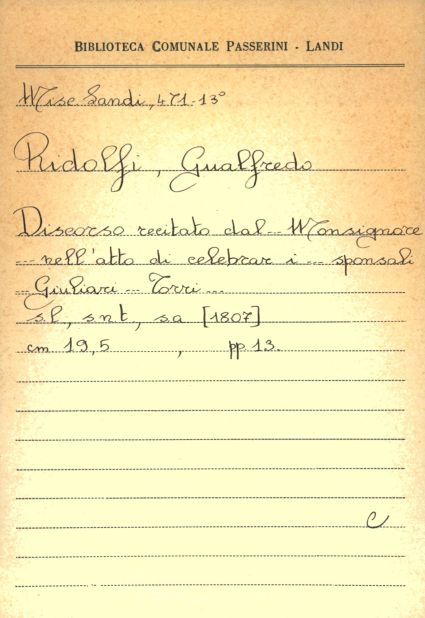 BIBLIOTECA COMUNALE PASSERINI - LANDI
Misc Landi, 471-13°
Ridolfi, Gualfredo
Discorso recitato dal ... Monsignore
... nell'atto di celebrar i ... sponsali
... Giuliari ... Torri ...
s.l, s.n.t, s.a [1807]
cm 19,5 , pp 13.
C